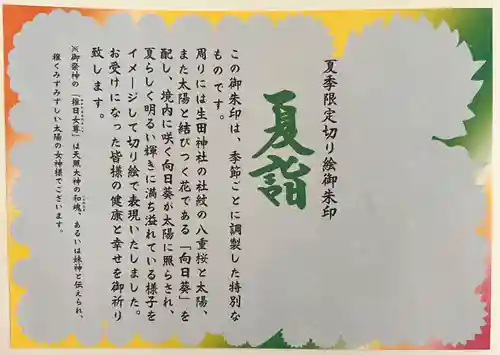 夏季限定切り絵御朱印
夏詣
この御朱印は、季節ごとに調製した特別な
ものです。
周りには生田神社の社紋の八重桜と太陽、
また太陽と結びつく花である「向日葵」を
配し、境内に咲く向日葵が太陽に照らされ、
夏らしく明るい輝きに満ち溢れている様子を
イメージして切り絵で表現いたしました。
お受けになった皆様の健康と幸せを御祈り
致します。
※御祭神の「稚日女尊」は天照大神の和魂、あるいは妹神と伝えられ、
稚くみずみずしい太陽の女神様でございます。